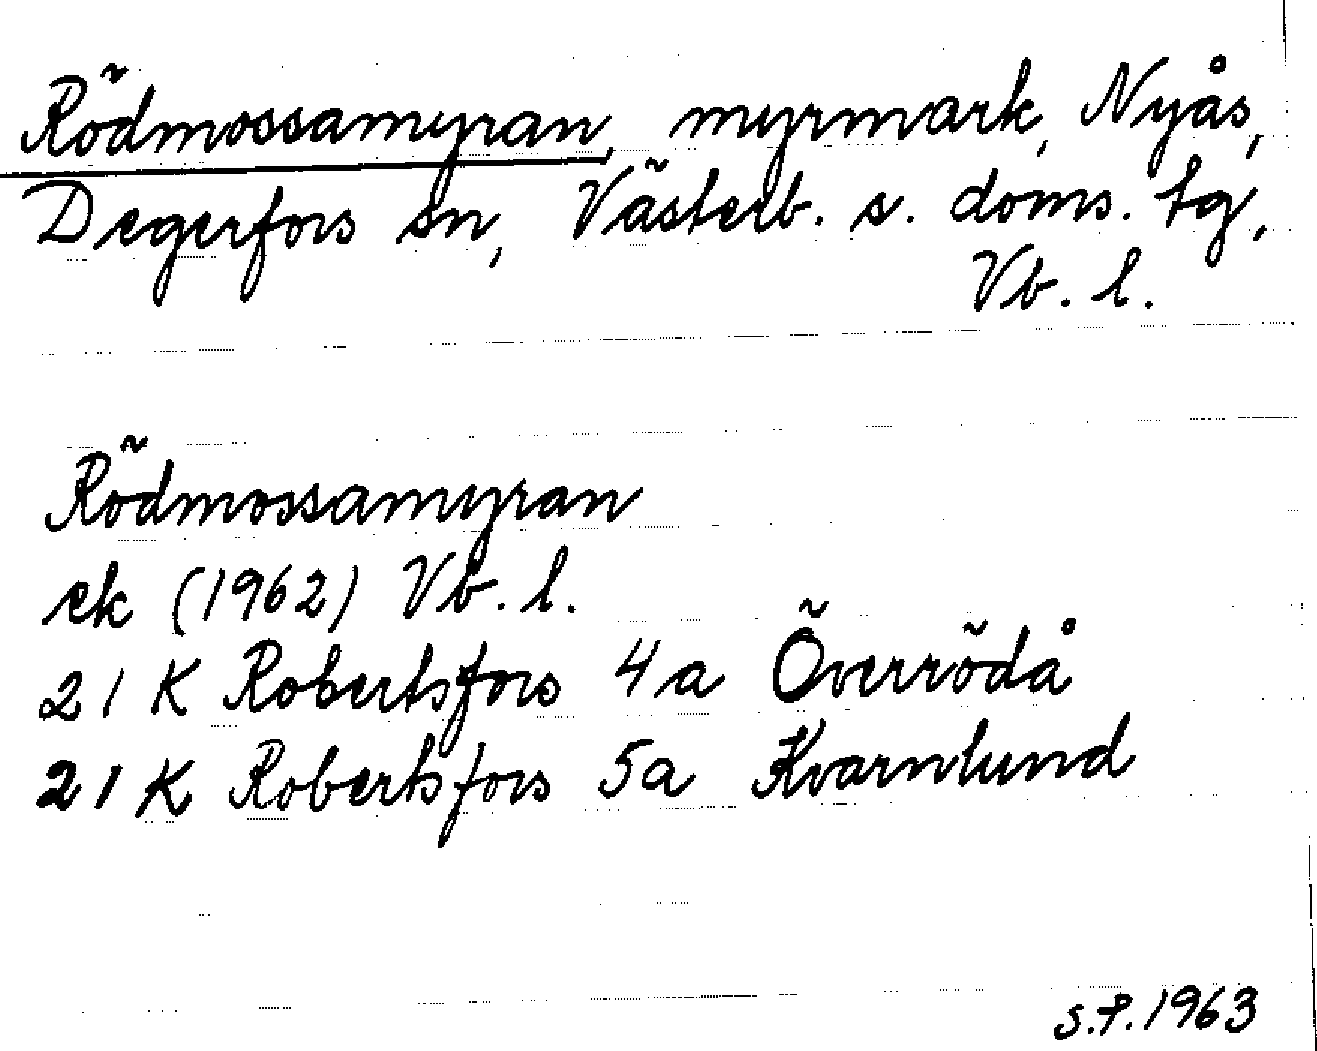 Rödmossamyran, myrmark, Nyås,
Degerfors sn, Västerb. s. doms. tg,
Vb. l.
Rödmossamyran
ek (1962) Vb. l.
21 K Robertsfors 4a Överrödå
21 K Robertsfors 5a Kvarnlund
S.P. 1963